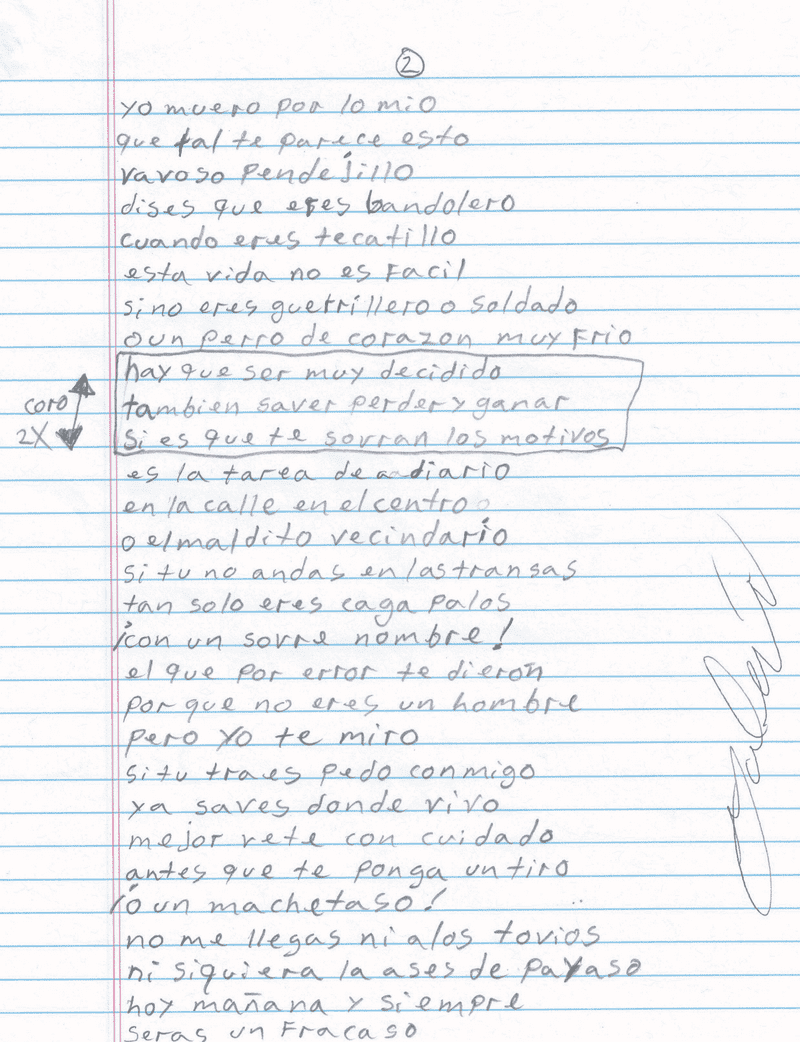 2
yo muero por lo mio
que tal te parece esto
vavoso pendejillo
dises que eres bandolero
cuando eres tecatillo
esta vida no es Facil
si no eres guerrillero o soldado
o un perro de corazon muy Frio
hay que ser muy decidido
coro
tambien saver perder y ganar
2X
si es que te sovran los motivos
es la tarea de a diario
en la calle en el centro
o el maldito vecindario
si tu no andas en las transas
tan solo eres caga palos
¡con un sovre nombre!
el que por error te dieron
por que no eres un hombre
pero yo te miro
si tu traes pedo conmigo
ya saves donde vivo
mejor vete con cuidado
antes que te ponga un tiro
¡o un machetaso!
no me llegas ni a los tovios
ni siquiera la ases de payaso
hoy mañana y siempre
seras un Fracaso